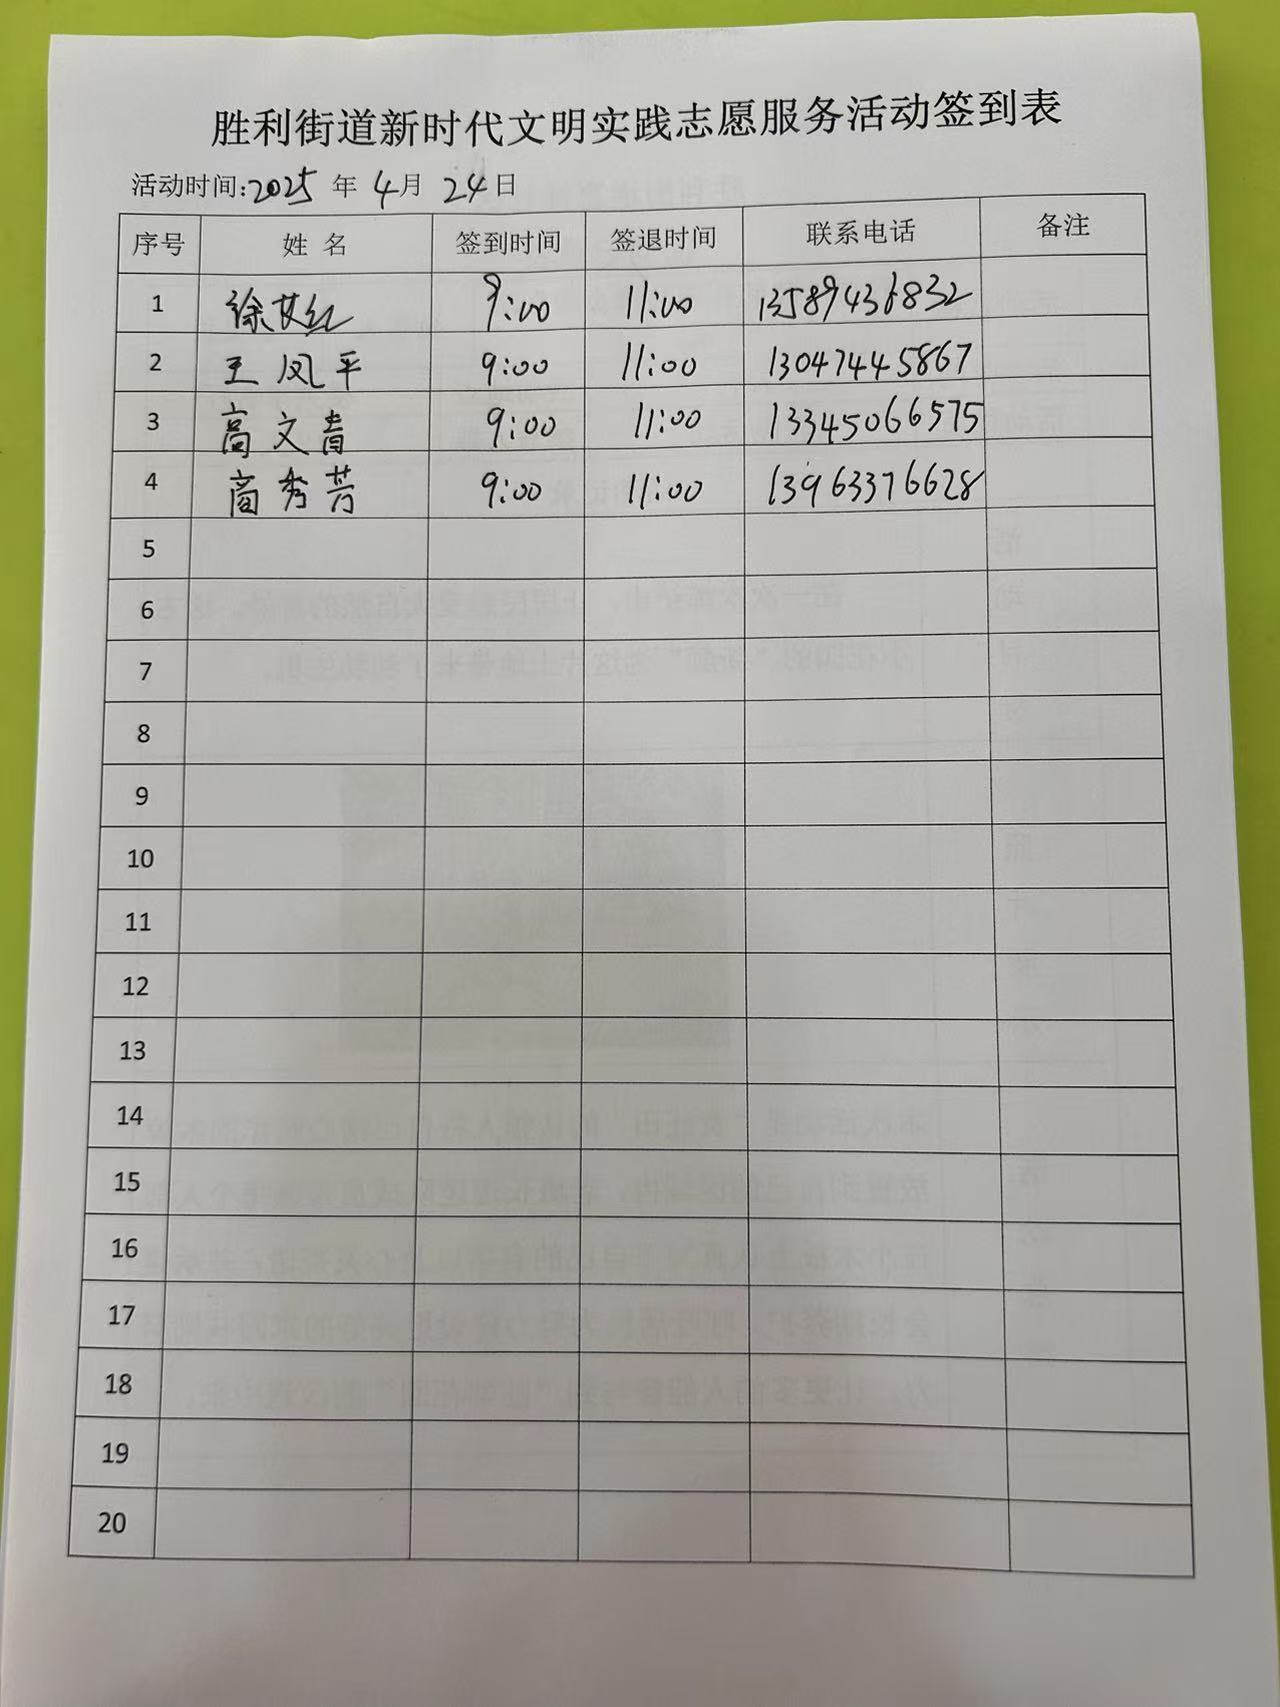 胜利街道新时代文明实践志愿服务活动签到表
活动时间:2025 年 4月 24日
序号 姓 名 签到时间 签退时间 联系电话 备注
1 徐艾红 9:00 11:00 13589436832
2 王凤平 9:00 11:00 13047445867
3 高文青 9:00 11:00 13345066575
4 高秀芳 9:00 11:00 13963376628
5
6
7
8
9
10
11
12
13
14
15
16
17
18
19
20